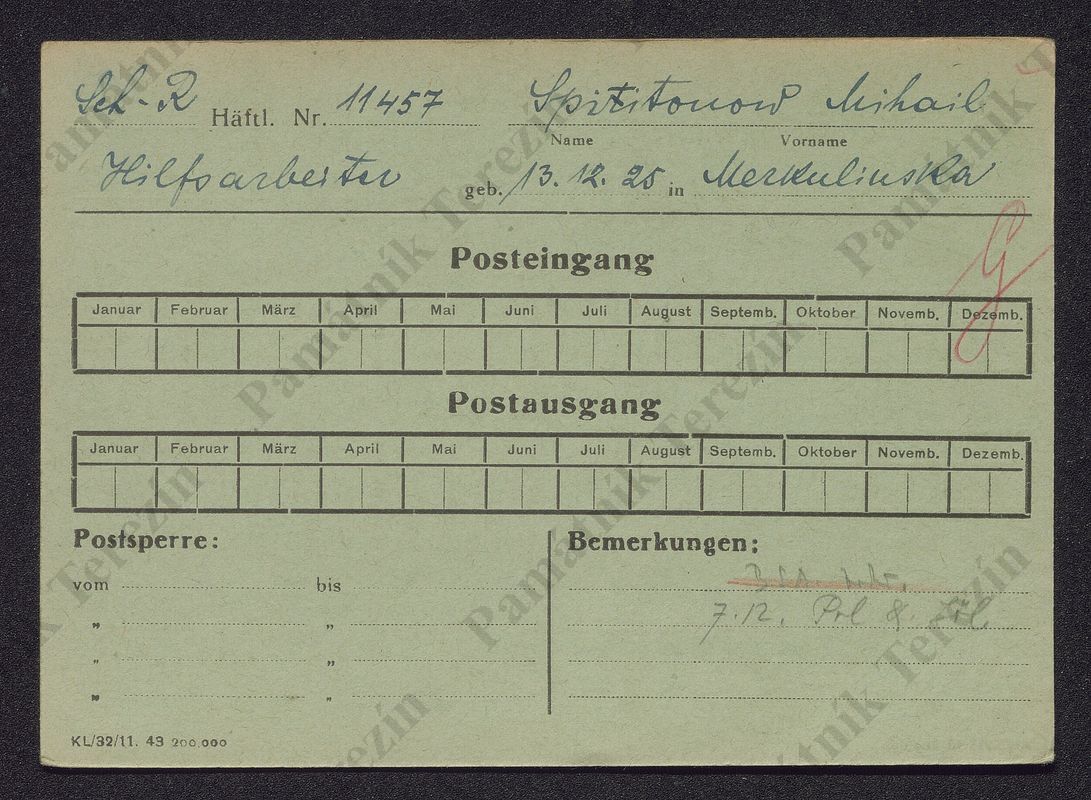 Sch-R Häftl. Nr. 11457 Spizitonow Mihail
Name Vorname
Hilfsarbeiter geb. 13.12.25 in Merkulinska
G
Posteingang
Januar Februar März April Mai Juni Juli August Septemb. Oktober Novemb. Dezemb.
Postausgang
Januar Februar März April Mai Juni Juli August Septemb. Oktober Novemb. Dezemb.
Postsperre: Bemerkungen:
vom bis
" " 7.12.
" "
" "
KL/32/11. 43 200.000
Památník Terezín